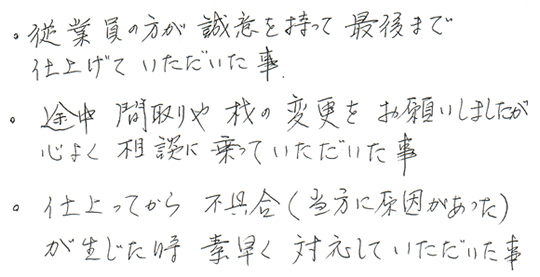 ・従業員の方が誠意を持って最後まで
仕上げていただいた事.
・途中 間取りや桟の変更をお願いしましたが
心よく相談に乗っていただいた事
・仕上ってから不具合(当方に原因があった)
が生じた時 素早く対応していただいた事